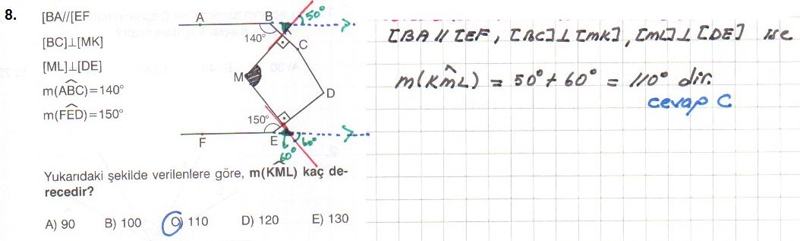 8.
[BA//[EF
[BC]⊥[MK]
[ML]⊥[DE]
m(ABC)=140°
m(FED)=150°
A B K 50°
140° C
M
D
150°
F E L 60°
60°
Yukarıdaki şekilde verilenlere göre, m(KML) kaç de-
recedir?
A) 90 B) 100 C) 110 D) 120 E) 130
[BA // [EF, [BC]⊥[MK], [ML]⊥[DE] ise
m(KML) = 50° + 60° = 110° dir.
cevap C